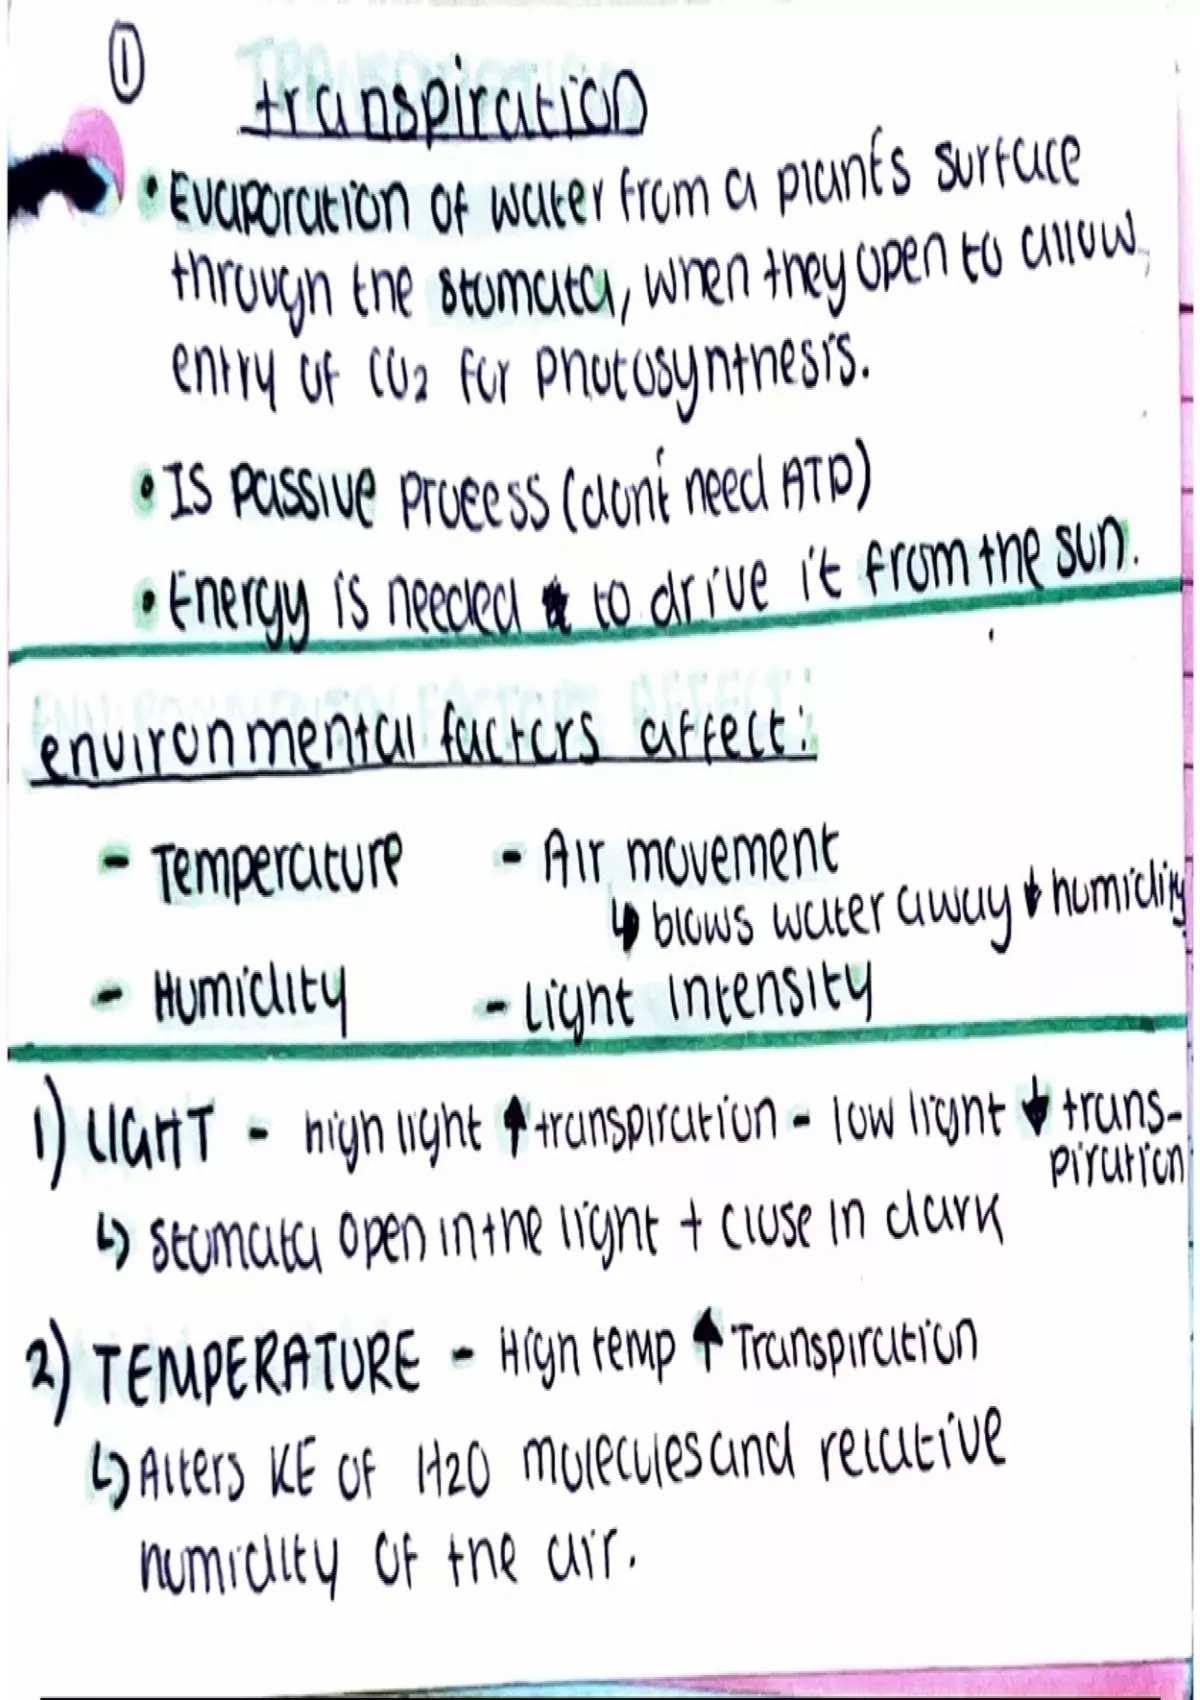 ①
transpiration
• Evaporation of water from a plant's surface
through the stomata, when they open to allow
entry of CO₂ for photosynthesis.
• Is passive process (don't need ATP)
• Energy is needed to drive it from the sun.
environmental factors affect:
- Temperature - Air movement
↳ blows water away ↓ humidity
- Humidity - Light Intensity
1) LIGHT - high light ↑ transpiration - low light ↓ trans-
piration
↳ Stomata open in the light + close in dark
2) TEMPERATURE - High temp ↑ Transpiration
↳ Alters KE of H2O molecules and relative
humidity of the air.